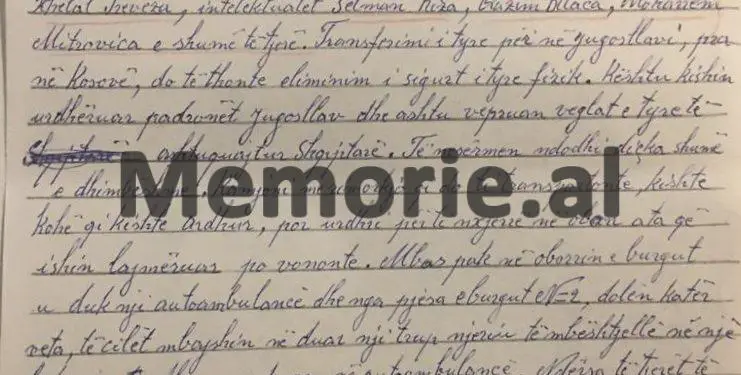 Xhelal Preveza, intelektualet Selman Riza, Muharrem
Mitrovica e shumë të tjerë. Transferimi i tyre për në Jugosllavi, pra
në Kosovë, do të thonte eliminim i sigurt i tyre fizik. Kështu kishin
urdhëruar padronët Jugosllav dhe ashtu vepruan veglat e tyre të
ashtuquajtur Shqiptarë. Të nesërmen ndodhi diçka shumë
e dhimbshme. Kamjoni me rimorkjo që do ti transportonte, kishte
kohë që kishte ardhur, por urdhri për të nxjerrë në oborr ata që
ishin lajmëruar po vononte. Mbas pak në oborrin e burgut
u duk nji autoambulancë dhe nga pjesa e burgut № 2, dolën katër
veta, të cilët mbajshin në duar nji trup njeriu të mbështjellë në një
autoambulancë. Ndërsa të tjerët të
Memorie.al